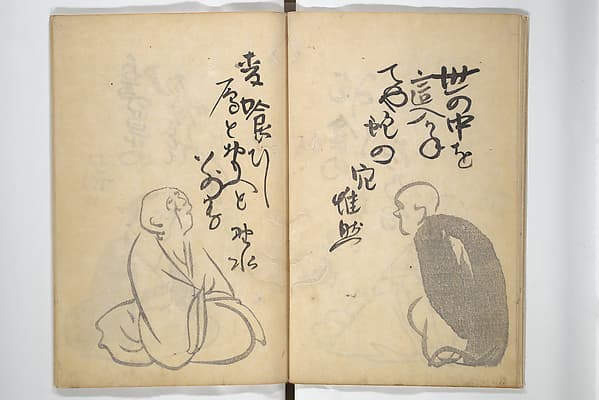 世の中を
這入かね
てや蛇の
穴
惟然
麦喰ひし
鴈と思へと
わかれ哉
野水